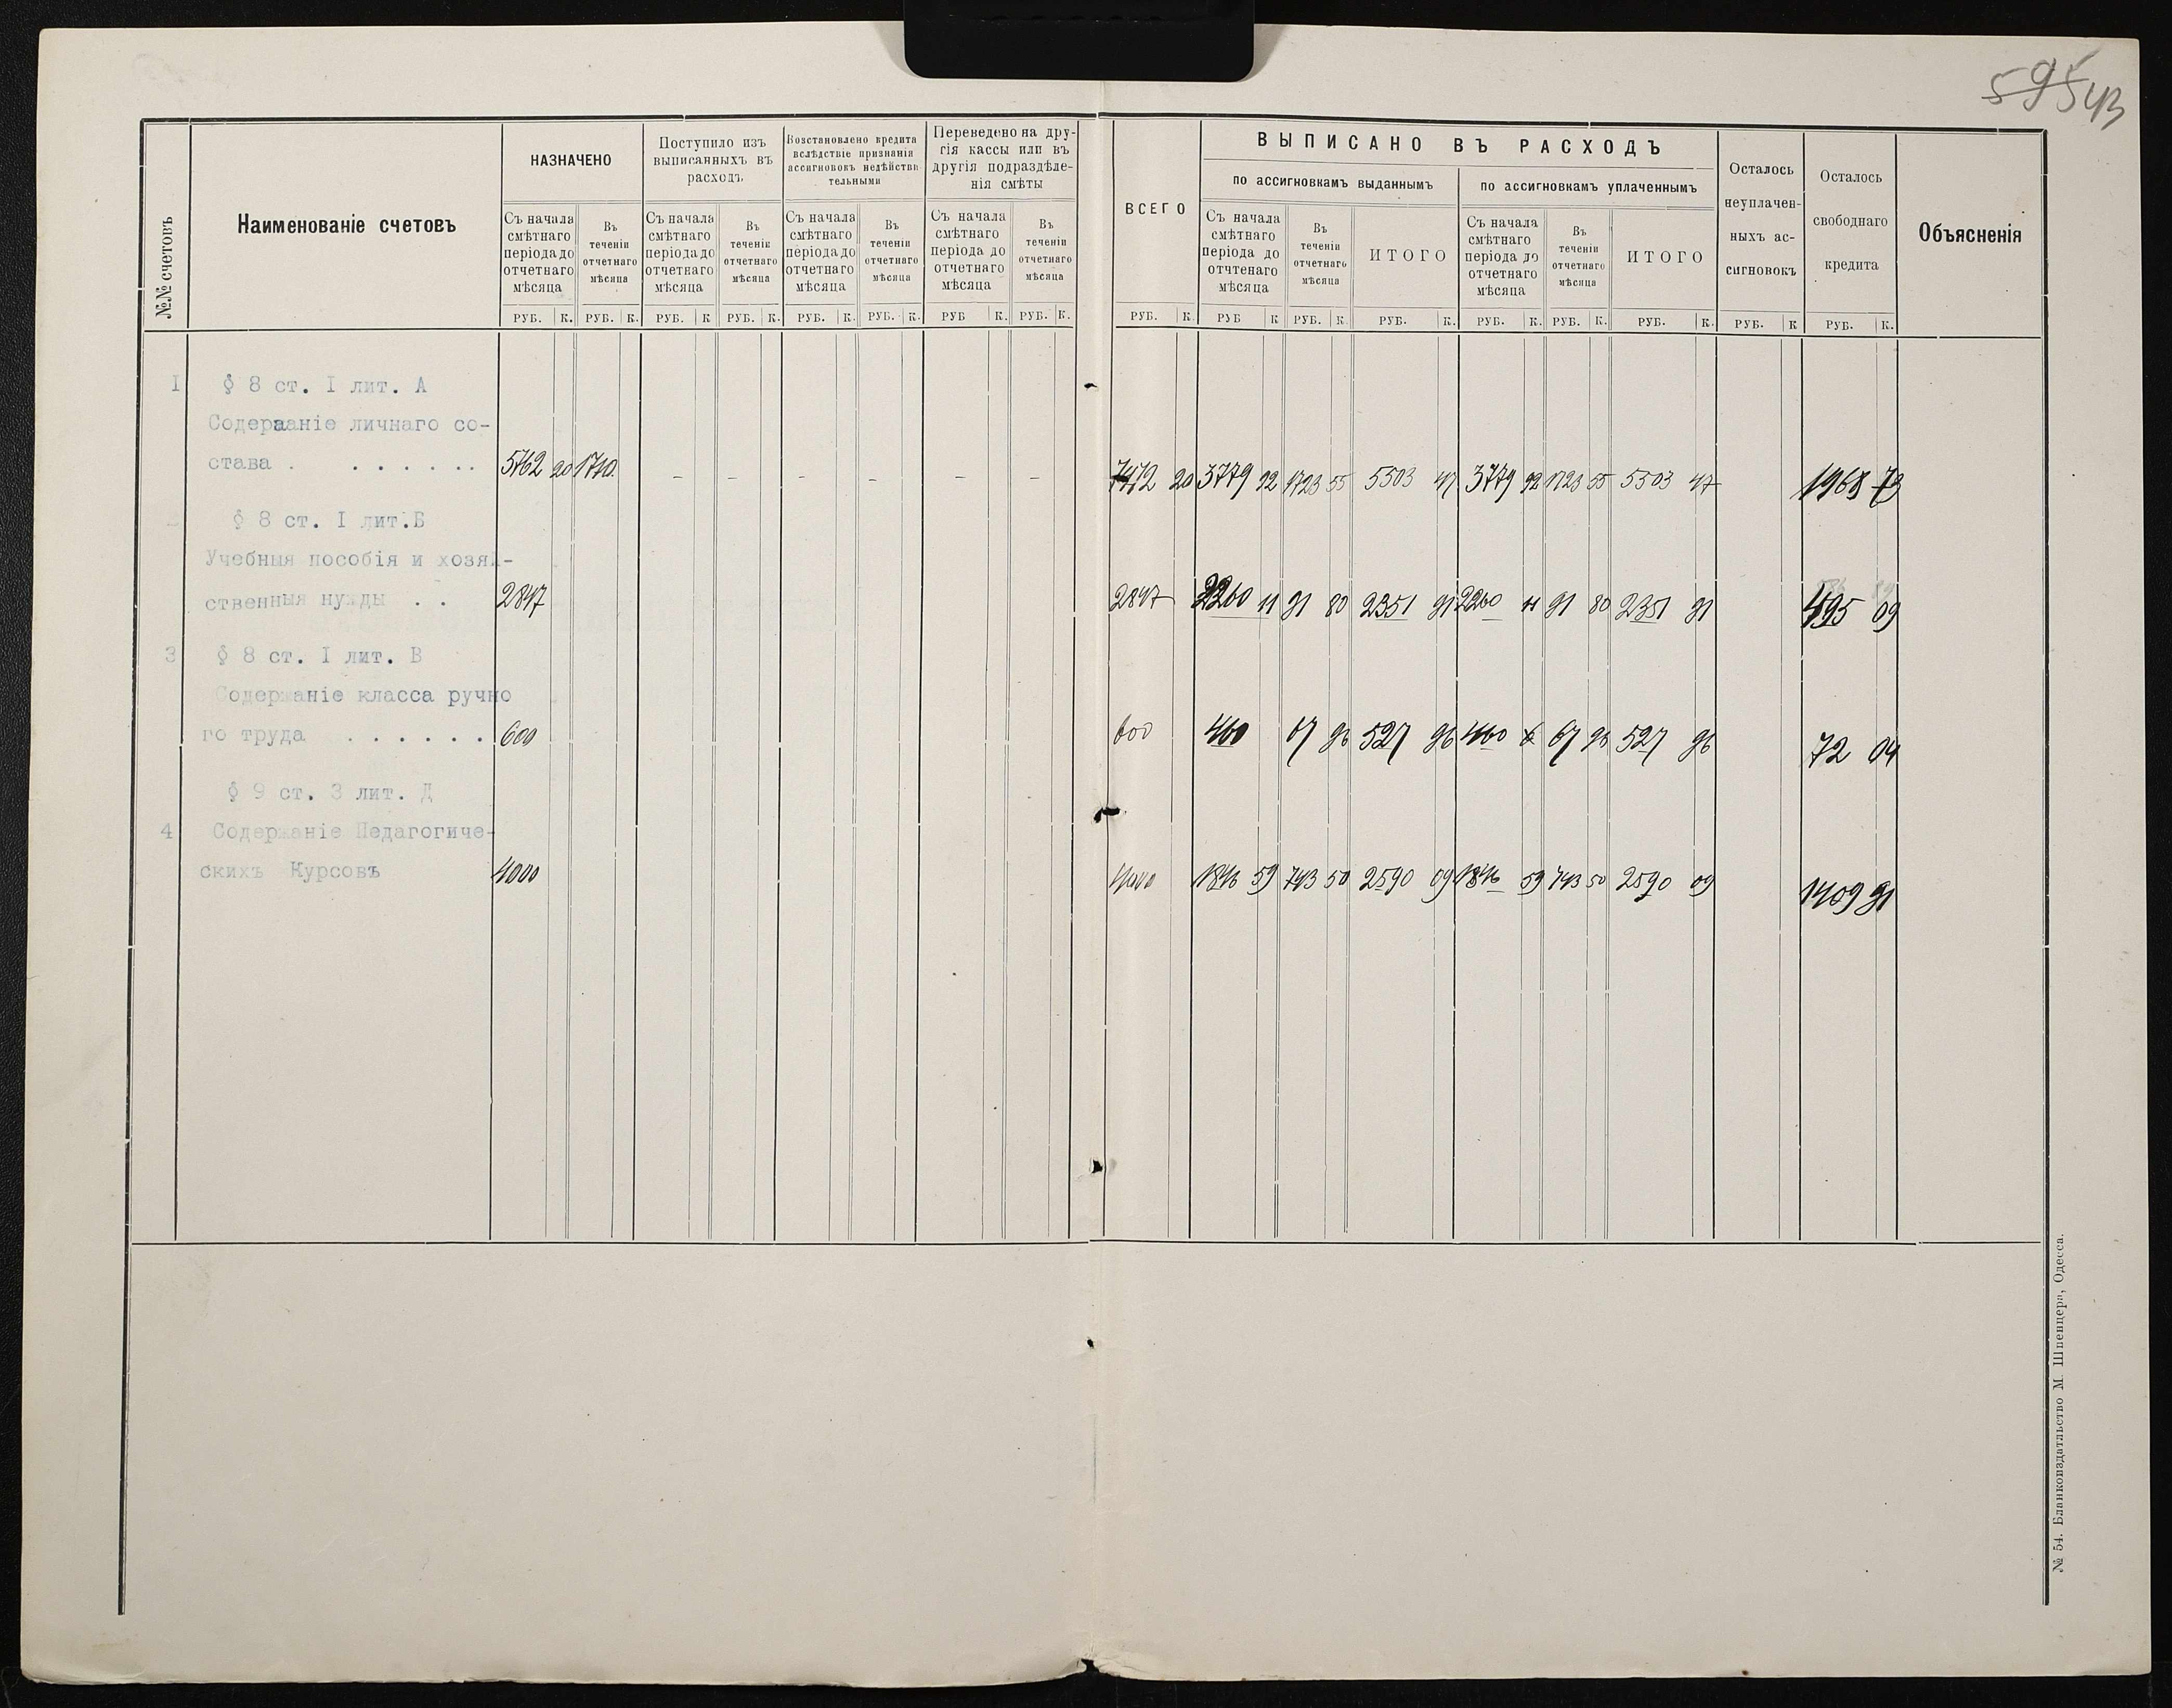 595 43
№№ счетовъ
Наименованіе счетовъ
НАЗНАЧЕНО
Поступило изъ
выписанныхъ въ
расходъ
Возстановлено кредита
вслѣдствіе признанія
ассигновокъ недѣйстви
тельными
Переведено на дру-
гія кассы или въ
другія подраздѣле-
нія смѣты
Съ начала
смѣтнаго
періода до
отчетнаго
мѣсяца
Въ
теченіи
отчетнаго
мѣсяца
Съ начала
смѣтнаго
періода до
отчетнаго
мѣсяца
Въ
теченіи
отчетнаго
мѣсяца
Съ начала
смѣтнаго
періода до
отчетнаго
мѣсяца
Въ
теченіи
отчетнаго
мѣсяца
Съ начала
смѣтнаго
періода до
отчетнаго
мѣсяца
Въ
теченіи
отчетнаго
мѣсяца
РУБ. К. РУБ. К. РУБ. К РУБ. К. РУБ. К. РУБ. К. РУБ К. РУБ. К.
ВСЕГО
ВЫПИСАНО ВЪ РАСХОДЪ
по ассигновкамъ выданнымъ
по ассигновкамъ уплаченнымъ
Съ начала
смѣтнаго
періода до
отчтенаго
мѣсяца
Въ
теченіи
отчетнаго
мѣсяца
ИТОГО
Съ начала
смѣтнаго
періода до
отчетнаго
мѣсяца
Въ
теченіи
отчетнаго
мѣсяца
ИТОГО
Осталось
неуплачен-
ныхъ ас-
сигновокъ
Осталось
свободнаго
кредита
Объясненія
РУБ. К. РУБ К РУБ. К. РУБ. К. РУБ. К. РУБ. К. РУБ. К. РУБ. К РУБ. К.
1 § 8 ст. I лит. А
Содераніе личнаго со-
става . . . . . . . 5762 20 1710 – – – – – – 7472 20 3779 92 1723 55 5503 47 3779 92 1723 55 5503 47 1968 73
§ 8 ст. I лит.Б
Учебныя пособія и хозяй-
ственныя нужды . . 2847 2847 2260 11 91 80 2351 91 2260 11 91 80 2351 91 495 09
3 § 8 ст. I лит. В
Содержаніе класса ручно
го труда . . . . . . 600 600 460 67 96 527 96 460 67 96 527 96 72 04
§ 9 ст. 3 лит. Д
4 Содержаніе Педагогиче-
скихъ Курсовъ 4000 4000 1846 59 743 50 2590 09 1846 59 743 50 2590 09 1409 91
№ 54. Бланкоиздатльство М. Шпенцера, Одесса.